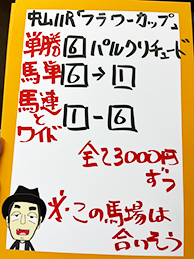 中山11R「フラワーカップ」
単勝 6 パルクリチュード
馬単 6→1
馬連とワイド 1-6
全て3000円ずつ
※この馬場は合いそう